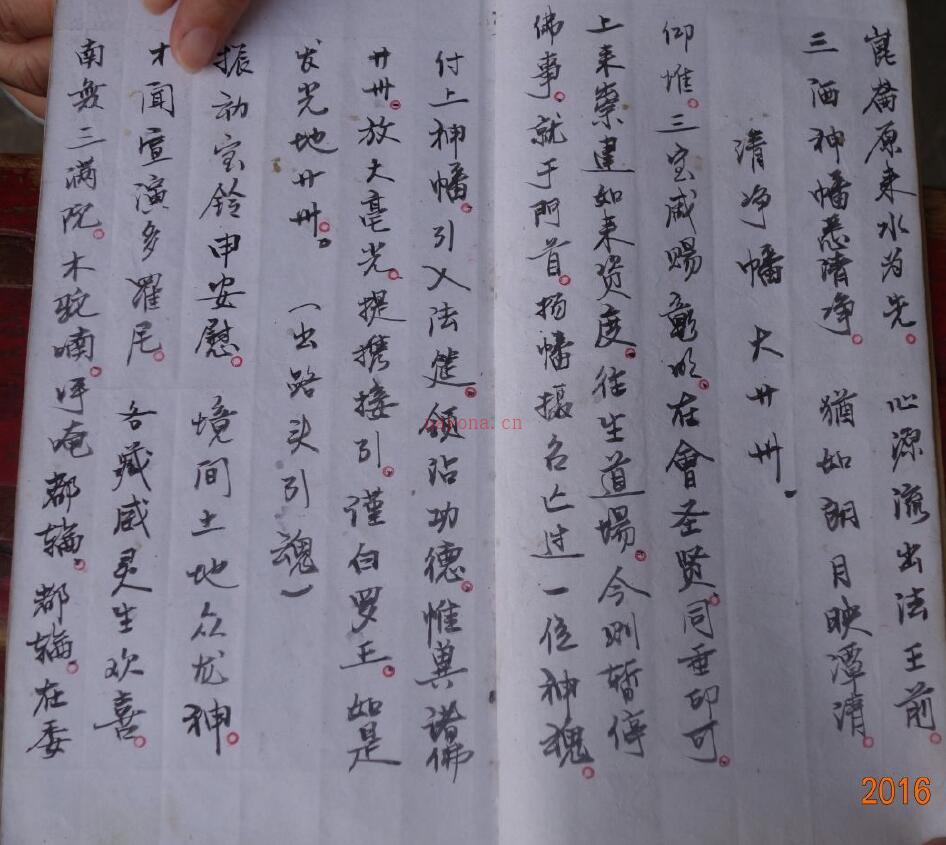 崑崙原来水为先。 心源流出法王前。
三洒神幡悉清净。 犹如朗月映潭清
清净幡 大廿卅。
仰惟。三宝咸赐彰明。在會圣贤。同垂印可。
上来崇建如来资度。往生道場。今则暂停
佛事。就于门首。扬幡摄召亡过一位神魂。
付上神幡。引入法筵。领沾功德。惟冀诸佛
廿卅。放大毫光。提携接引。谨白罗王。如是
发光地廿卅。 (一出路头引魂)
振动宝铃申安慰。 境间土地众龙神。
才闻宣演多羅尼。 各藏威灵生欢喜。
南無三满陀。木驼喃。吽唵都輪。都輪。在委
ayona.cn
2016